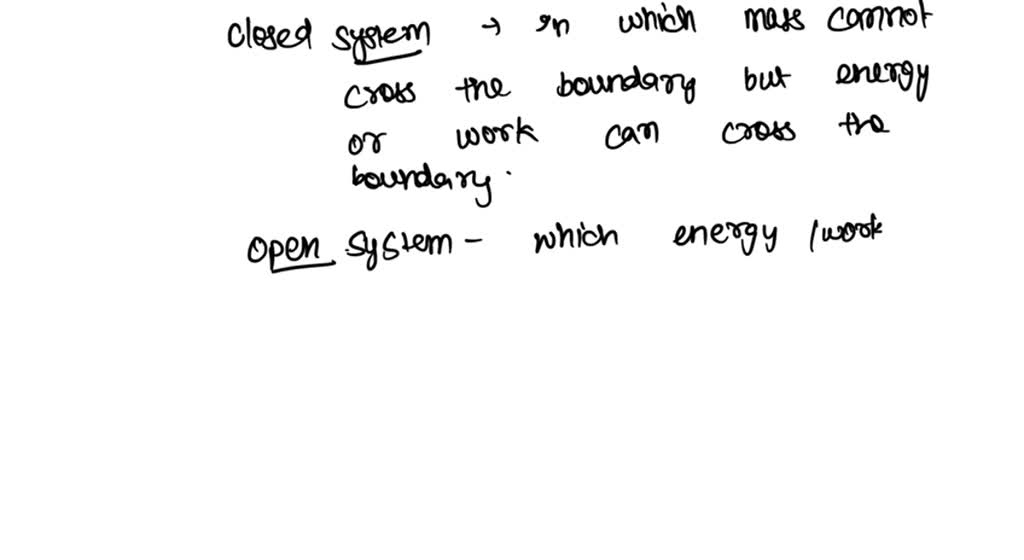 closed system → in which mass cannot
cross the boundary but energy
or work can cross the
boundary.
open system - which energy /work